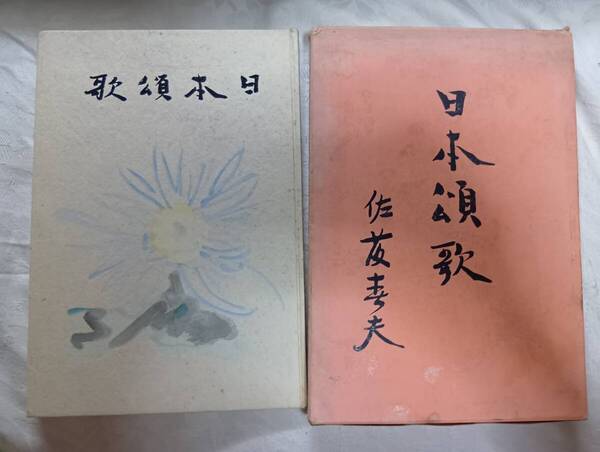 日本頌歌
日本頌歌
佐藤春夫